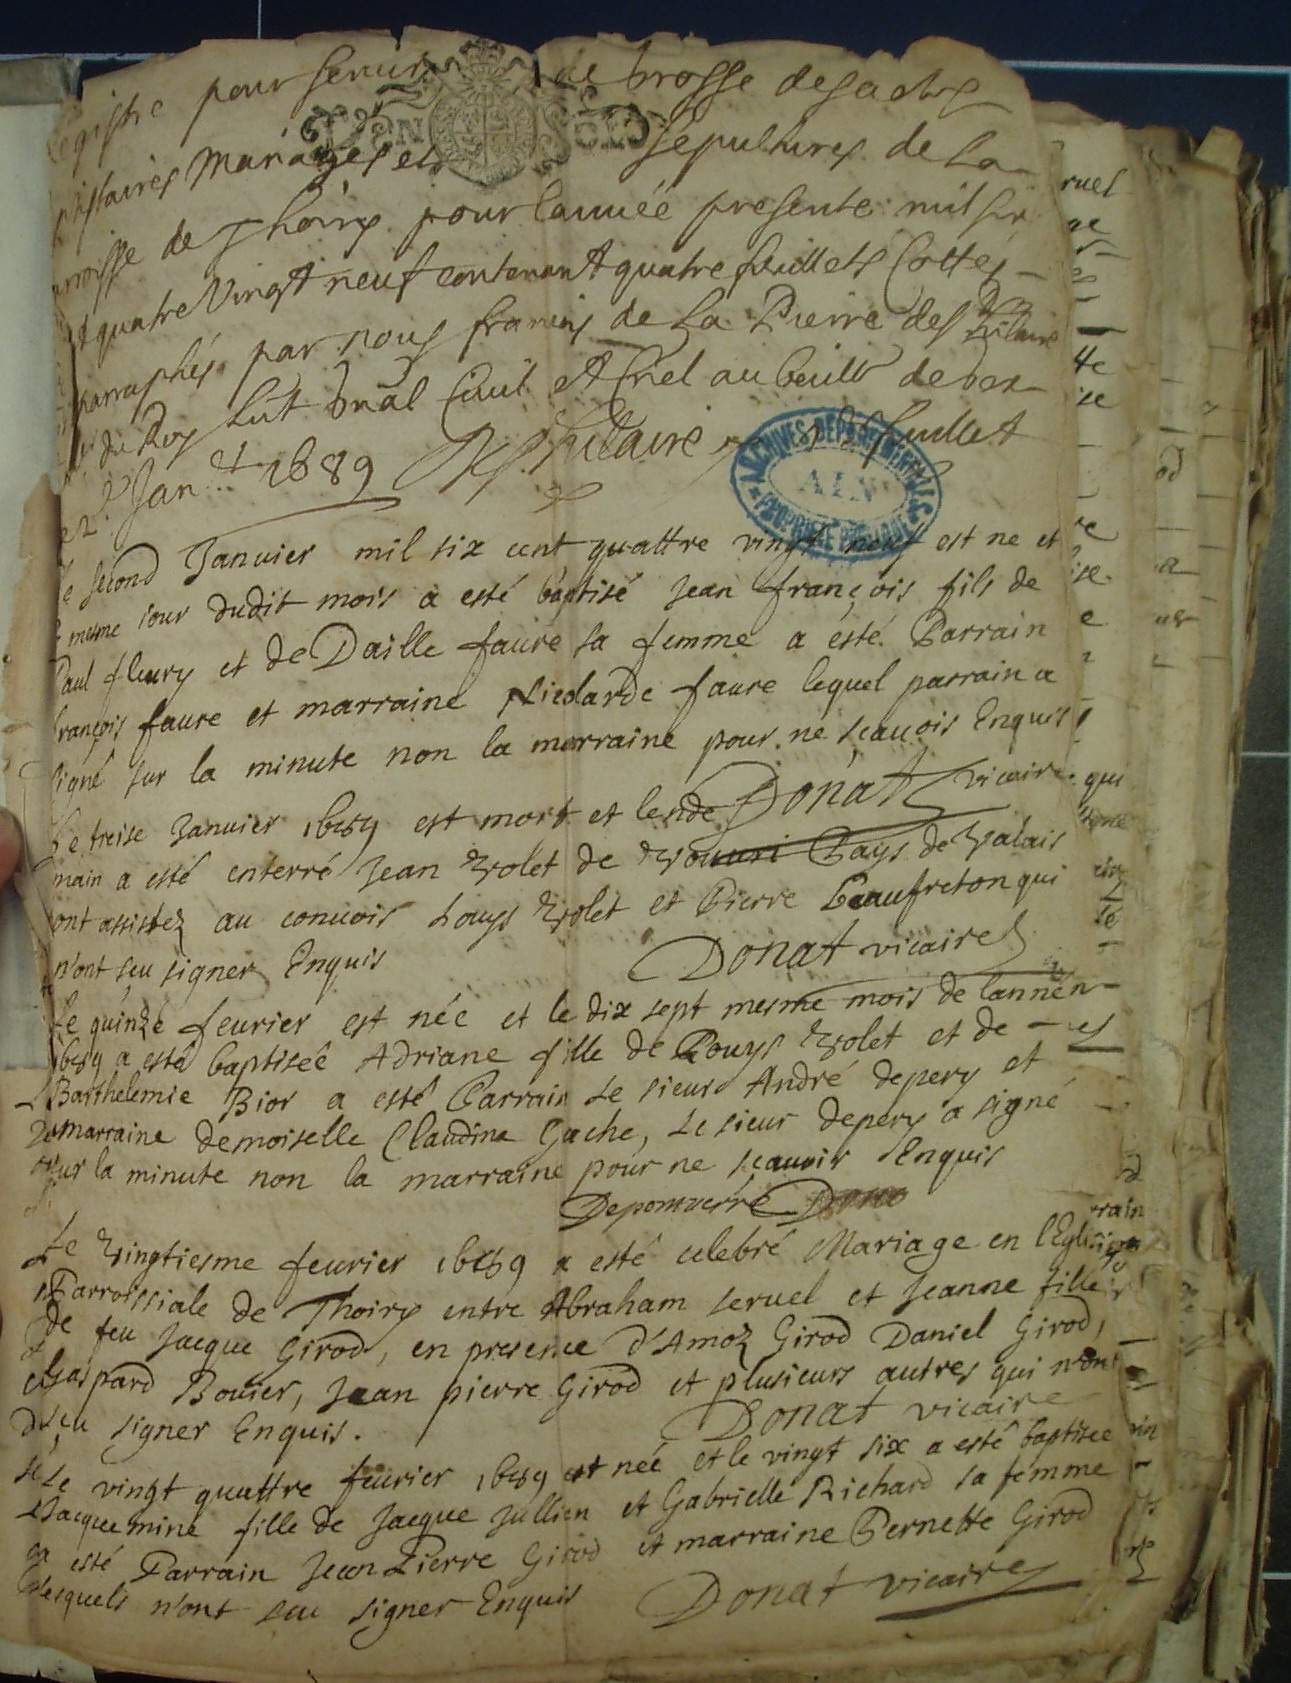 Registre pour servir de brosse des actes
ptistaires Mariages et sepultures de la
arroisse de Thoiry pour lannéé presente mil six
quatre vingt neuf contenant quatre feuillets Cottés
parraphés par nous francois de la Pierre de St hilaire
du Roy Lut gnal Civil et Criel au bailł de
2e Jan 1689 St hilaire
ARCHIVES DEPARTEMENTALES
AIN
PROPRIETE PUBLIQUE
le second Januier mil six cent quattre vingt neuf est ne et
mesme iour dudit mois a esté baptisé Jean françois fils de
Paul fleury et de Daille faure sa femme a esté Parrain
françois faure et marraine Nicolarde faure lequel parrain a
signé sur la minute non la marraine pour ne sçauois Enquis
Donat vicaire
Le treise Januier 1689 est mort et lende
main a esté enterré Jean Volet de Pays de Valais
ont assistez au conuois Louys Volet et Pierre Beaufreton qui
n'ont sçu signer Enquis Donat vicaire
Le quinze feurier est née et le dix sept mesme mois de lannéé
1689 a esté baptiseé Adriane fille de Louys Volet et de
Barthelemie Bior a esté Parrain Le sieur André depery et
marraine demoiselle Claudine Gache, Le sieur depery a signé
sur la minute non la marraine pour ne scauoir Enquis
Depomierre
Le Vingtiesme feurier 1689 a esté celebré Mariage en l'Eglise
Parroissiale de Thoiry entre Abraham seruel et Jeanne fille
de feu Jacque Girod, en presence d'Amoz Girod Daniel Girod,
Gaspard Bouier, Jean pierre Girod et plusieurs autres qui n'ont
sçu signer Enquis. Donat vicaire
Le vingt quattre feurier 1689 est neé et le vingt six a esté baptisee
Jacquemine fille de Jacque Jullien et Gabrielle Richard sa femme
a esté Parrain Jean Pierre Girod et marraine Pernette Girod
lesquels n'ont sçu signer Enquis Donat vicaire